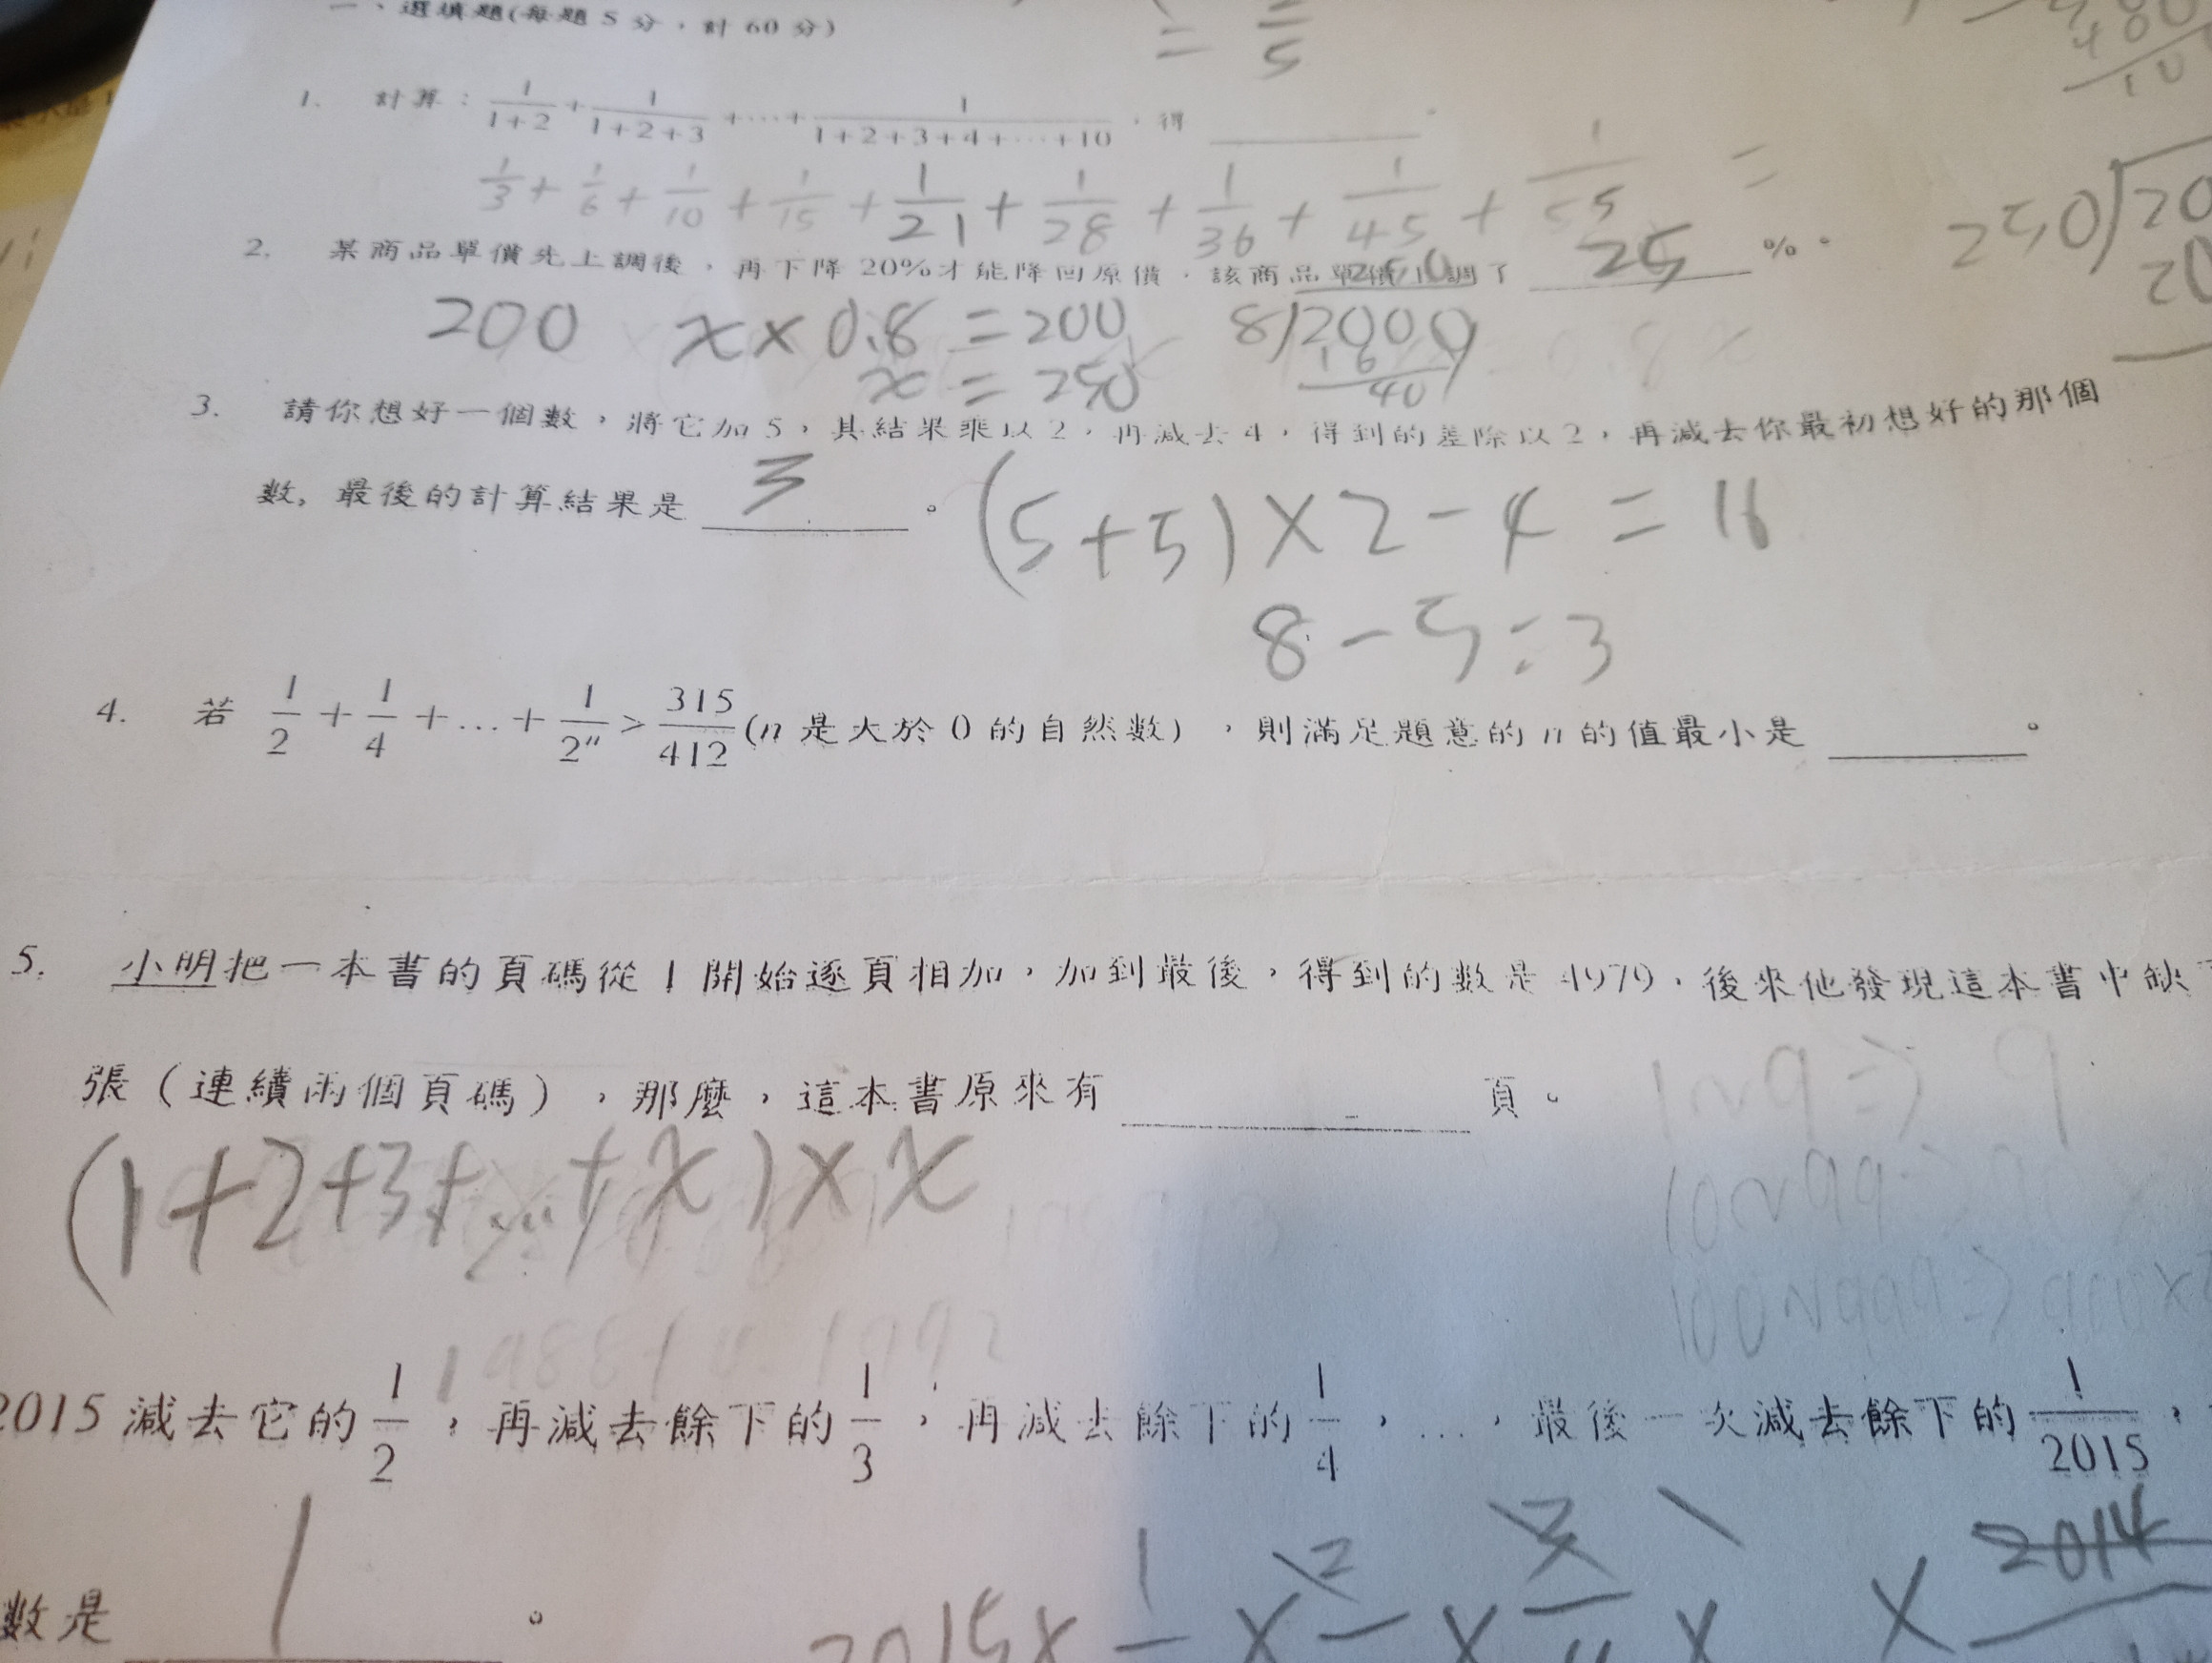 一、選填題(每題 5 分，計 60 分)
= 5
1. 計算：1/(1+2) + 1/(1+2+3) +…+ 1/(1+2+3+4+…+10)，得 ______.
1/3 + 1/6 + 1/10 + 1/15 + 1/21 + 1/28 + 1/36 + 1/45 + 1/55 =
2. 某商品單價先上調後，再下降 20%才能降回原價，該商品單價上調了 25 %。
200 x×0.8 =200 8)2000
x = 250 40
3. 請你想好一個數，將它加 5，其結果乘以 2，再減去 4，得到的差除以 2，再減去你最初想好的那個
數, 最後的計算結果是 3 。
(5+5)×2-4 = 16
8-5=3
4. 若 1/2 + 1/4 +…+ 1/2ⁿ > 315/412 (n 是大於 0 的自然數)，則滿足題意的 n 的值最小是 ______。
5. 小明把一本書的頁碼從 1 開始逐頁相加，加到最後，得到的數是 4979，後來他發現這本書中缺
張（連續兩個頁碼），那麼，這本書原來有 ______ 頁。
(1+2+3+……+x)×x
2015 減去它的 1/2，再減去餘下的 1/3，再減去餘下的 1/4，…，最後一次減去餘下的 1/2015，
數是 1 。
2015×
2014